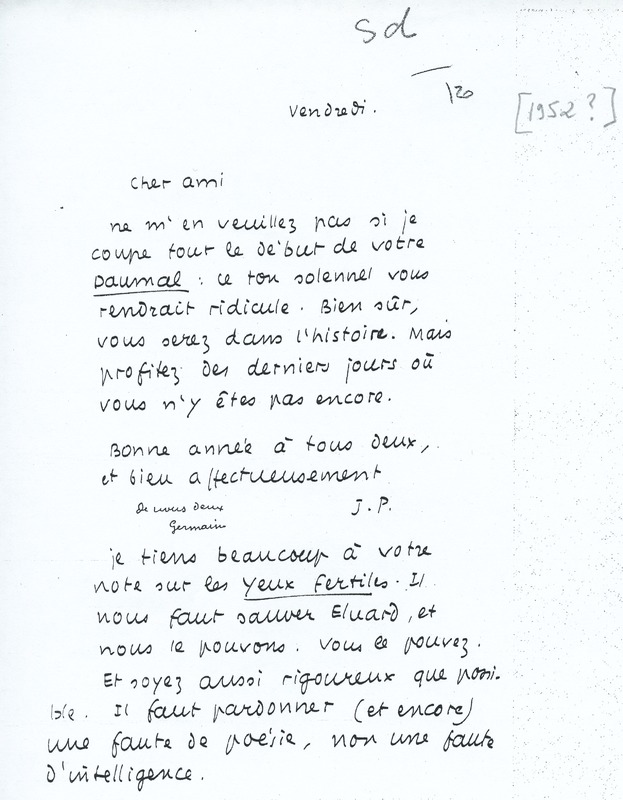 sd
/20
[1952?]
Vendredi.
Cher ami
ne m'en veuillez pas si je
coupe tout le début de votre
Daumal : ce ton solennel vous
rendrait ridicule. Bien sûr,
vous serez dans l'histoire. Mais
profitez des derniers jours où
vous n'y êtes pas encore.
Bonne année à tous deux,
et bien affectueusement
de nous deux
Germain
J.P.
je tiens beaucoup à votre
note sur les Yeux fertiles. Il
nous faut sauver Eluard, et
nous le pouvons. Vous le pouvez.
Et soyez aussi rigoureux que possi-
ble. Il faut pardonner (et encore)
une faute de poésie, non une faute
d'intelligence.